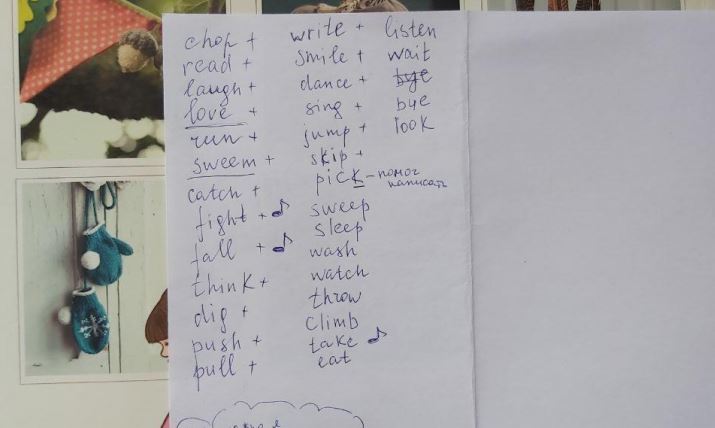 chop +
read +
laugh +
love +
run +
sweem +
catch +
fight + ♪
fall + ♪
think +
dig +
push +
pull +
write +
smile +
dance +
sing +
jump +
skip +
pick - помог написать
sweep
sleep
wash
watch
throw
climb
take ♪
eat
listen
wait
bye
bye
look